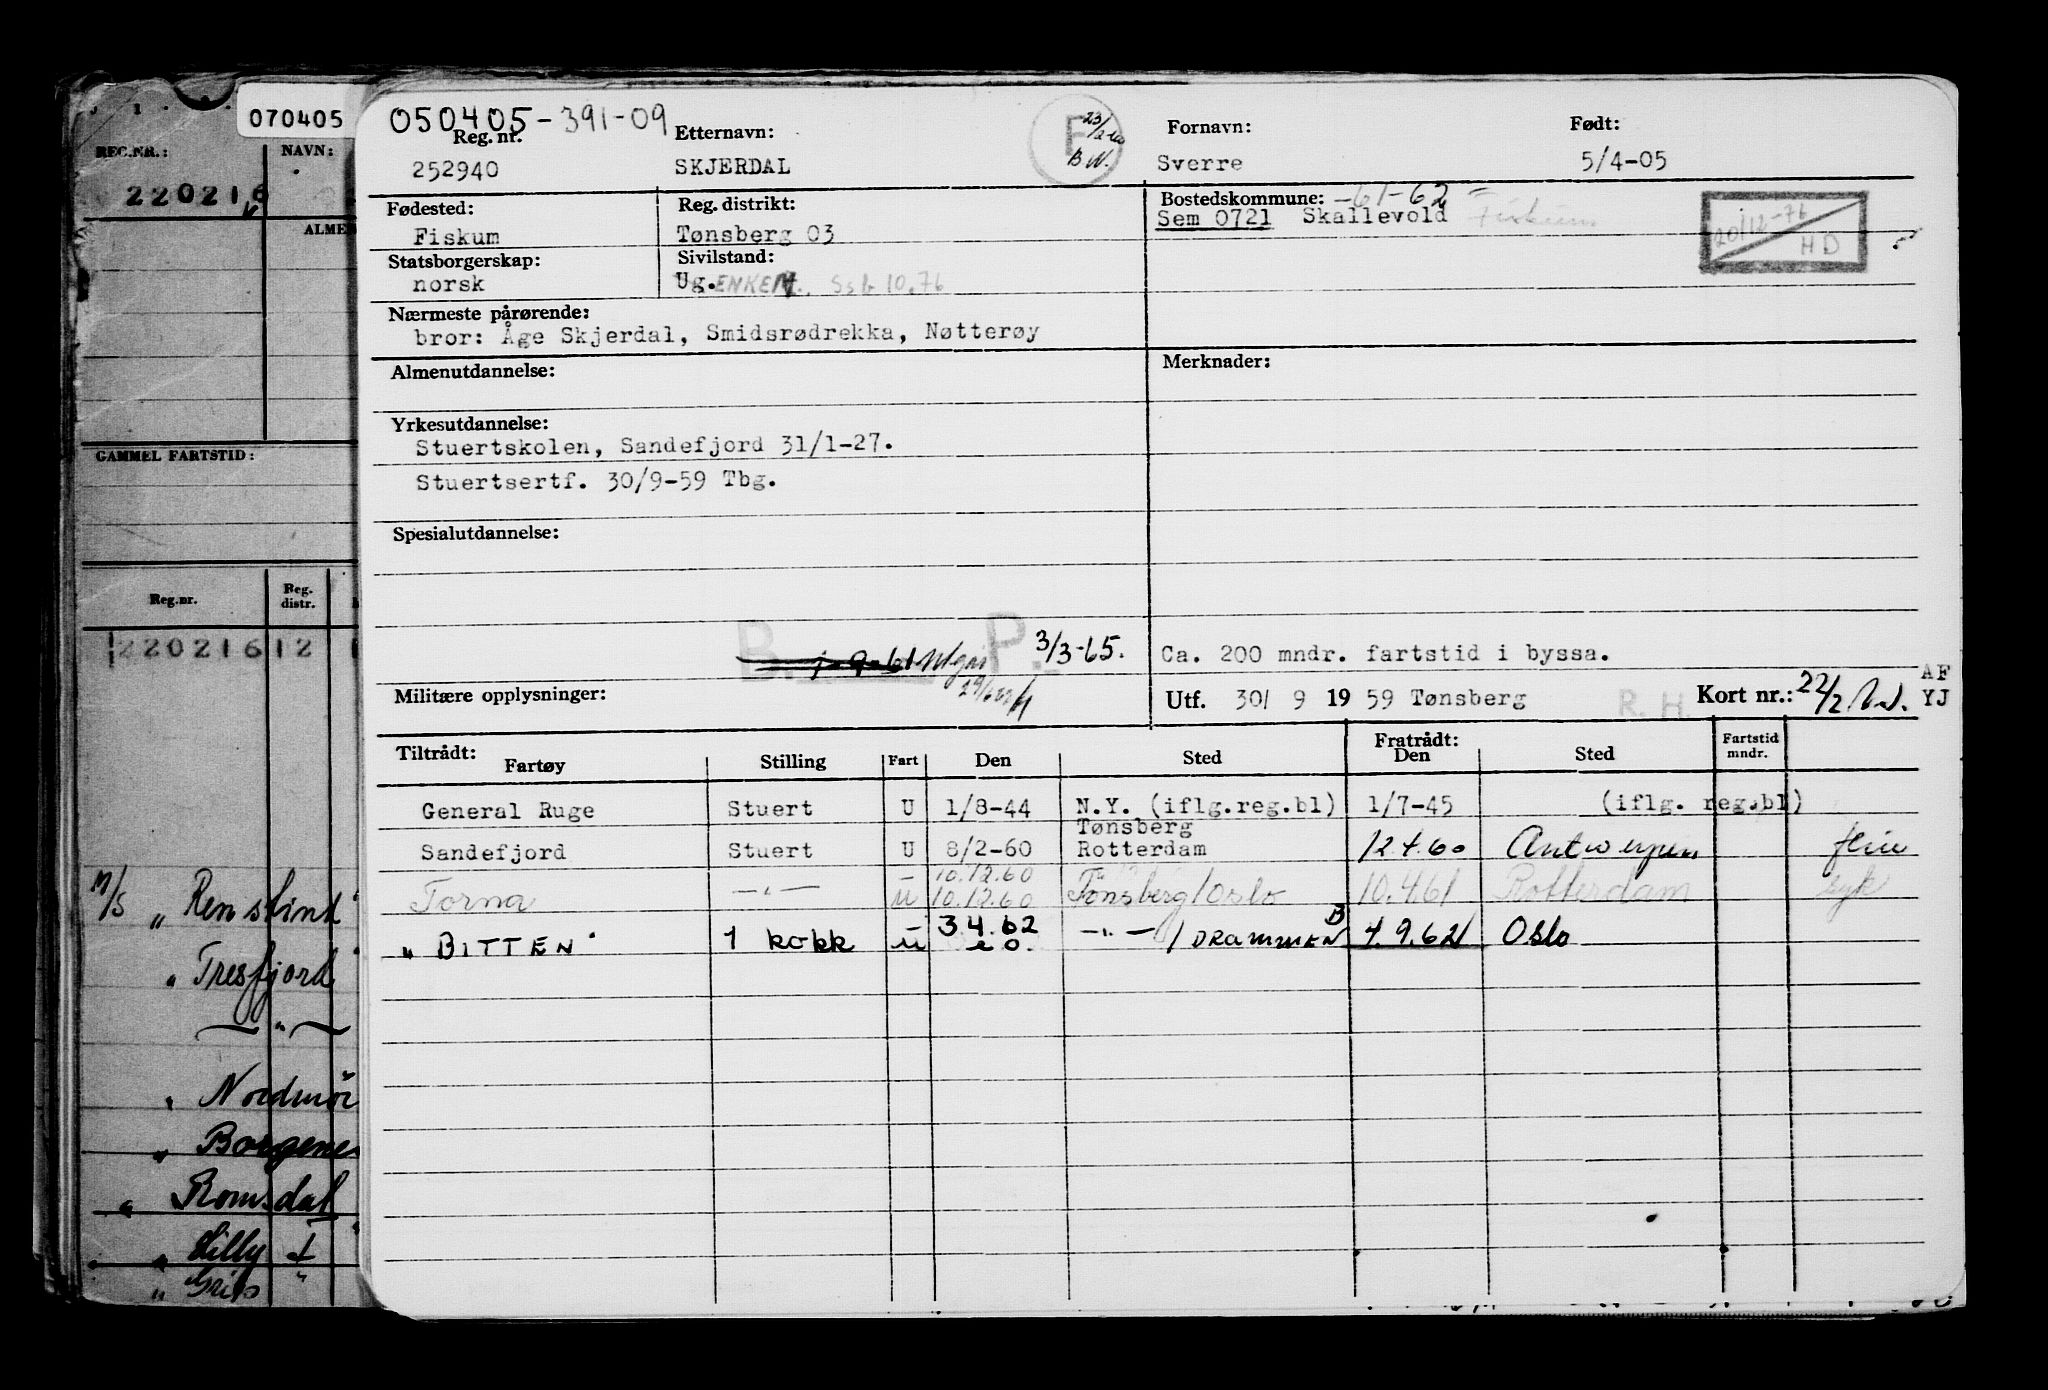 070405
REG.NR.: NAVN:
220216
ALMEN
GAMMEL FARTSTID:
Reg.nr. Reg. distr.
220216 12
M/S " Renstind"
" Tresfjord"
— " —
" Nordmør
" Borgenes
" Romsdal
" Lilly
" Grip
050405-391-09
Reg. nr. Etternavn: Fornavn: Født:
252940 SKJERDAL Sverre 5/4-05
F 23/2-60 BN.
Fødested: Reg. distrikt: Bostedskommune: -61-62 =
Fiskum Tønsberg 03 Sem 0721 Skallevold Fiskum
20/12-76 HD
Statsborgerskap: Sivilstand:
norsk Ug. ENKEM. Ssb 10.76
Nærmeste pårørende:
bror: Åge Skjerdal, Smidsrødrekka, Nøtterøy
Almenutdannelse: Merknader:
Yrkesutdannelse:
Stuertskolen, Sandefjord 31/1-27.
Stuertsertf. 30/9-59 Tbg.
Spesialutdannelse:
B. P. 3/3-65.
Ca. 200 mndr. fartstid i byssa.
Militære opplysninger: Utf. 30/ 9 19 59 Tønsberg R. H. Kort nr.: 22/2 AF YJ
Tiltrådt: Fratrådt:
Fartøy Stilling Fart Den Sted Den Sted Fartstid mndr.
General Ruge Stuert U 1/8-44 N.Y. (iflg.reg.bl) 1/7-45 (iflg. reg.bl)
Sandefjord Stuert U 8/2-60 Tønsberg Rotterdam 12.4.60 Antwerpen
Torna — " — U 10.12.60 10.12.60 Tønsberg/Oslo 10.4.61 Rotterdam syk
" BITTEN" 1 kokk U 3.4.62 — " — / DRAMMEN B 4.9.62 Oslo